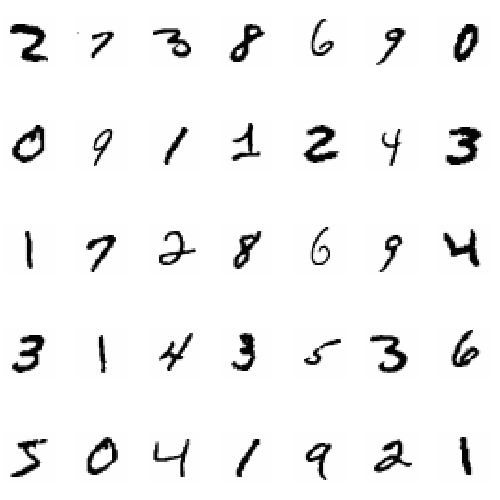 2 7 3 8 6 9 0
0 9 1 1 2 4 3
1 7 2 8 6 9 4
3 1 4 3 5 3 6
5 0 4 1 9 2 1